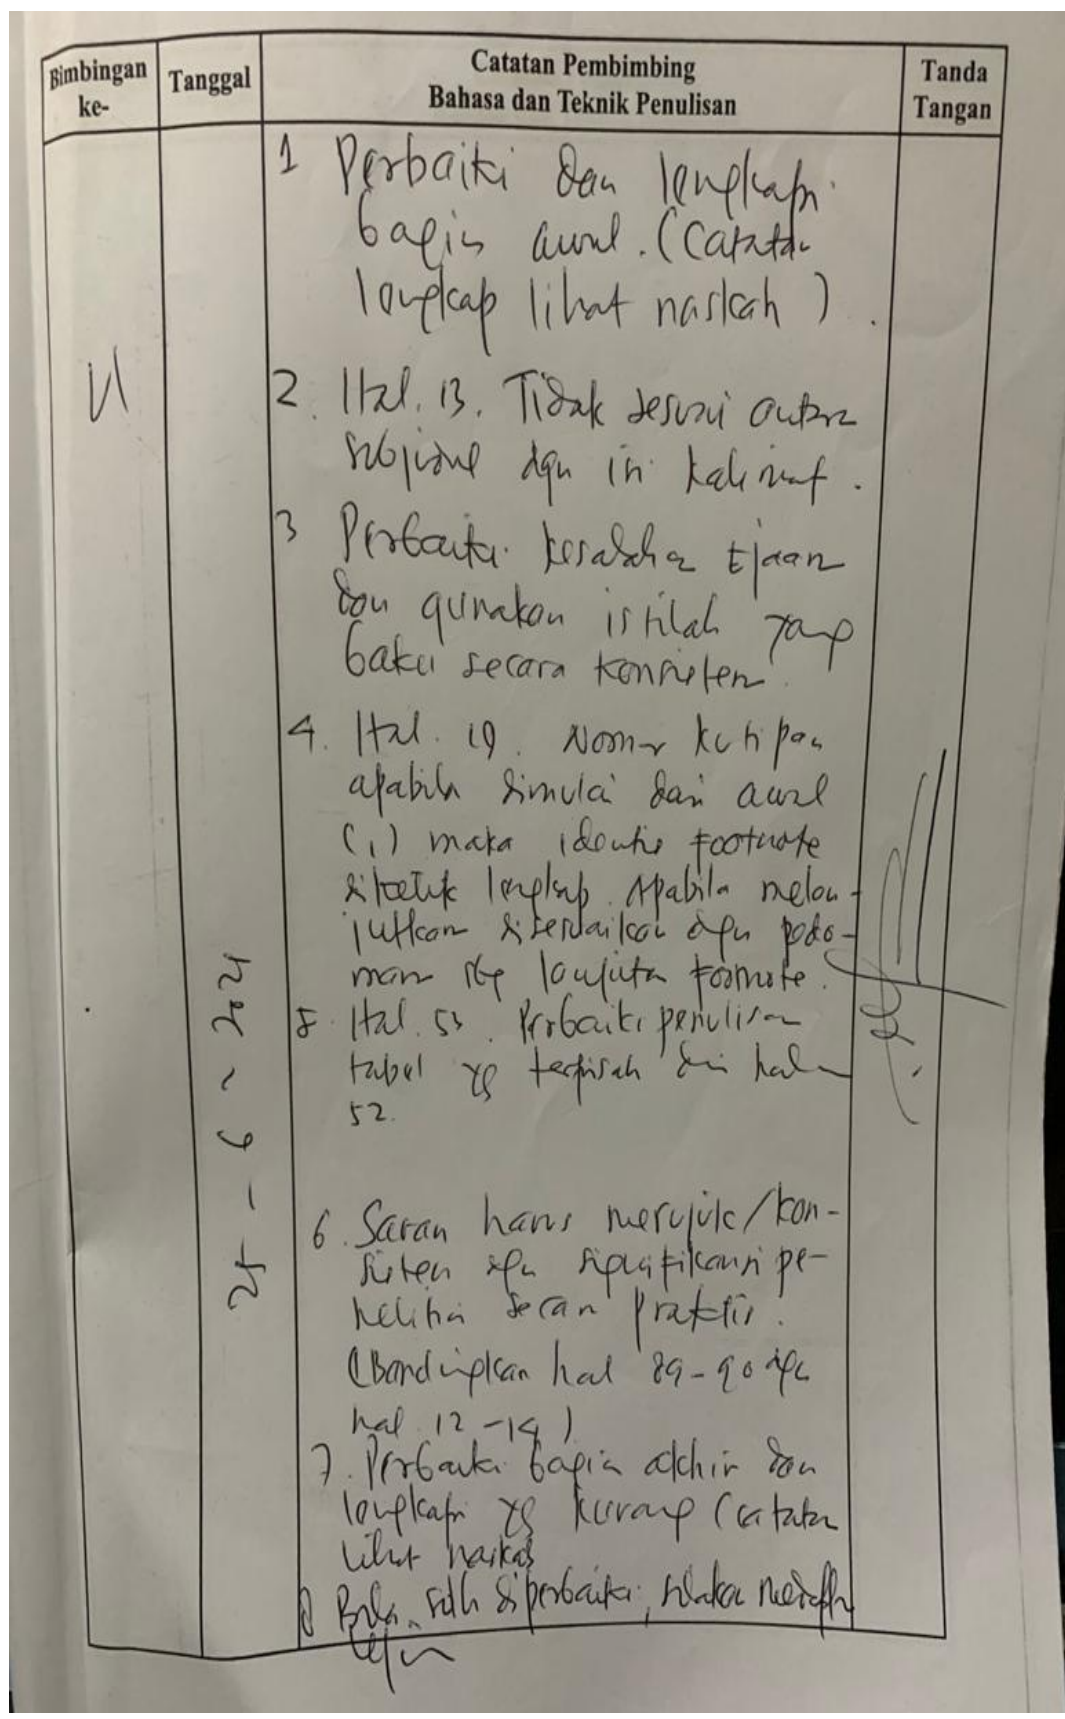 Bimbingan ke-
Tanggal
Catatan Pembimbing
Bahasa dan Teknik Penulisan
Tanda Tangan
1 Perbaiki dan lengkapi
bagin awal. (Catatan
lengkap lihat naskah)
VI
2. Hal. 13. Tidak sesuai antara
dgn isi kalimat.
3 Perbaiki kesalahan Ejaan
dan gunakan istilah yang
baku secara konsisten.
4. Hal. 19. Nomor kutipan
apabila dimulai dari awal
(1) maka footnote
diketik lengkap. Apabila melan-
jutkan disesuaikan dgn pedo-
man ttg lanjutan footnote.
5. Hal. 53. Perbaiki penulisan
tabel yg terpisah dri halam
52.
25 - 6 - 2021
6. Saran harus merujuk/kon-
sisten dgn signifikansi pe-
nelitian secara praktis.
(Bandingkan hal 89-90 dgn
hal 12-14)
7. Perbaiki bagian akhir dan
lengkapi yg kurang (catatan
lihat naskah
8 Bila sdh diperbaiki, silakan